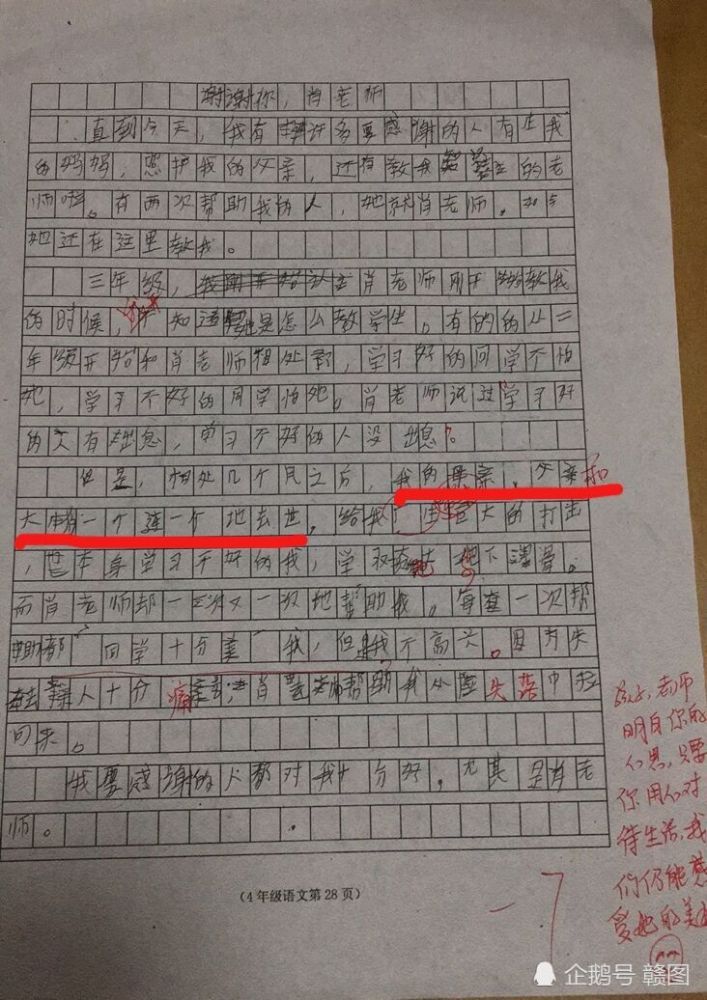 谢谢你,肖老师
直到今天,我有许多要感谢的人有生我
的妈妈,照护我的父亲,还有教我的老
师啦。有两次帮助我的人,她就肖老师。如今
她还在这里教我。
三年级,肖老师刚开始教我
的时候,不知道她是怎么教学生。有的的从二
年级开始和肖老师相处 ,学习好的同学不怕
她,学习不好的同学怕她。肖老师说过学习好
的人有出息,学习不好的人没出息。
但是,相处几个月之后,我的 亲,父亲和
大 一个连一个地去世,给我 巨大的打击
, 本身学习不好的我,学 下 。
而肖老师却一次又一次地帮助我。每在一次帮
助都 同学十分 我,但是我不高兴。因为失
去亲人十分痛 ,肖老师帮助我从 失落中拉
回来。
我要感谢的人都对我十分好。尤其是肖老
师。
(4年级语文第28页)
孩子,老师
明白你的
心思,只要
你用心对
待生活,我
们仍能感
受她的美
-7
企鹅号 赣图